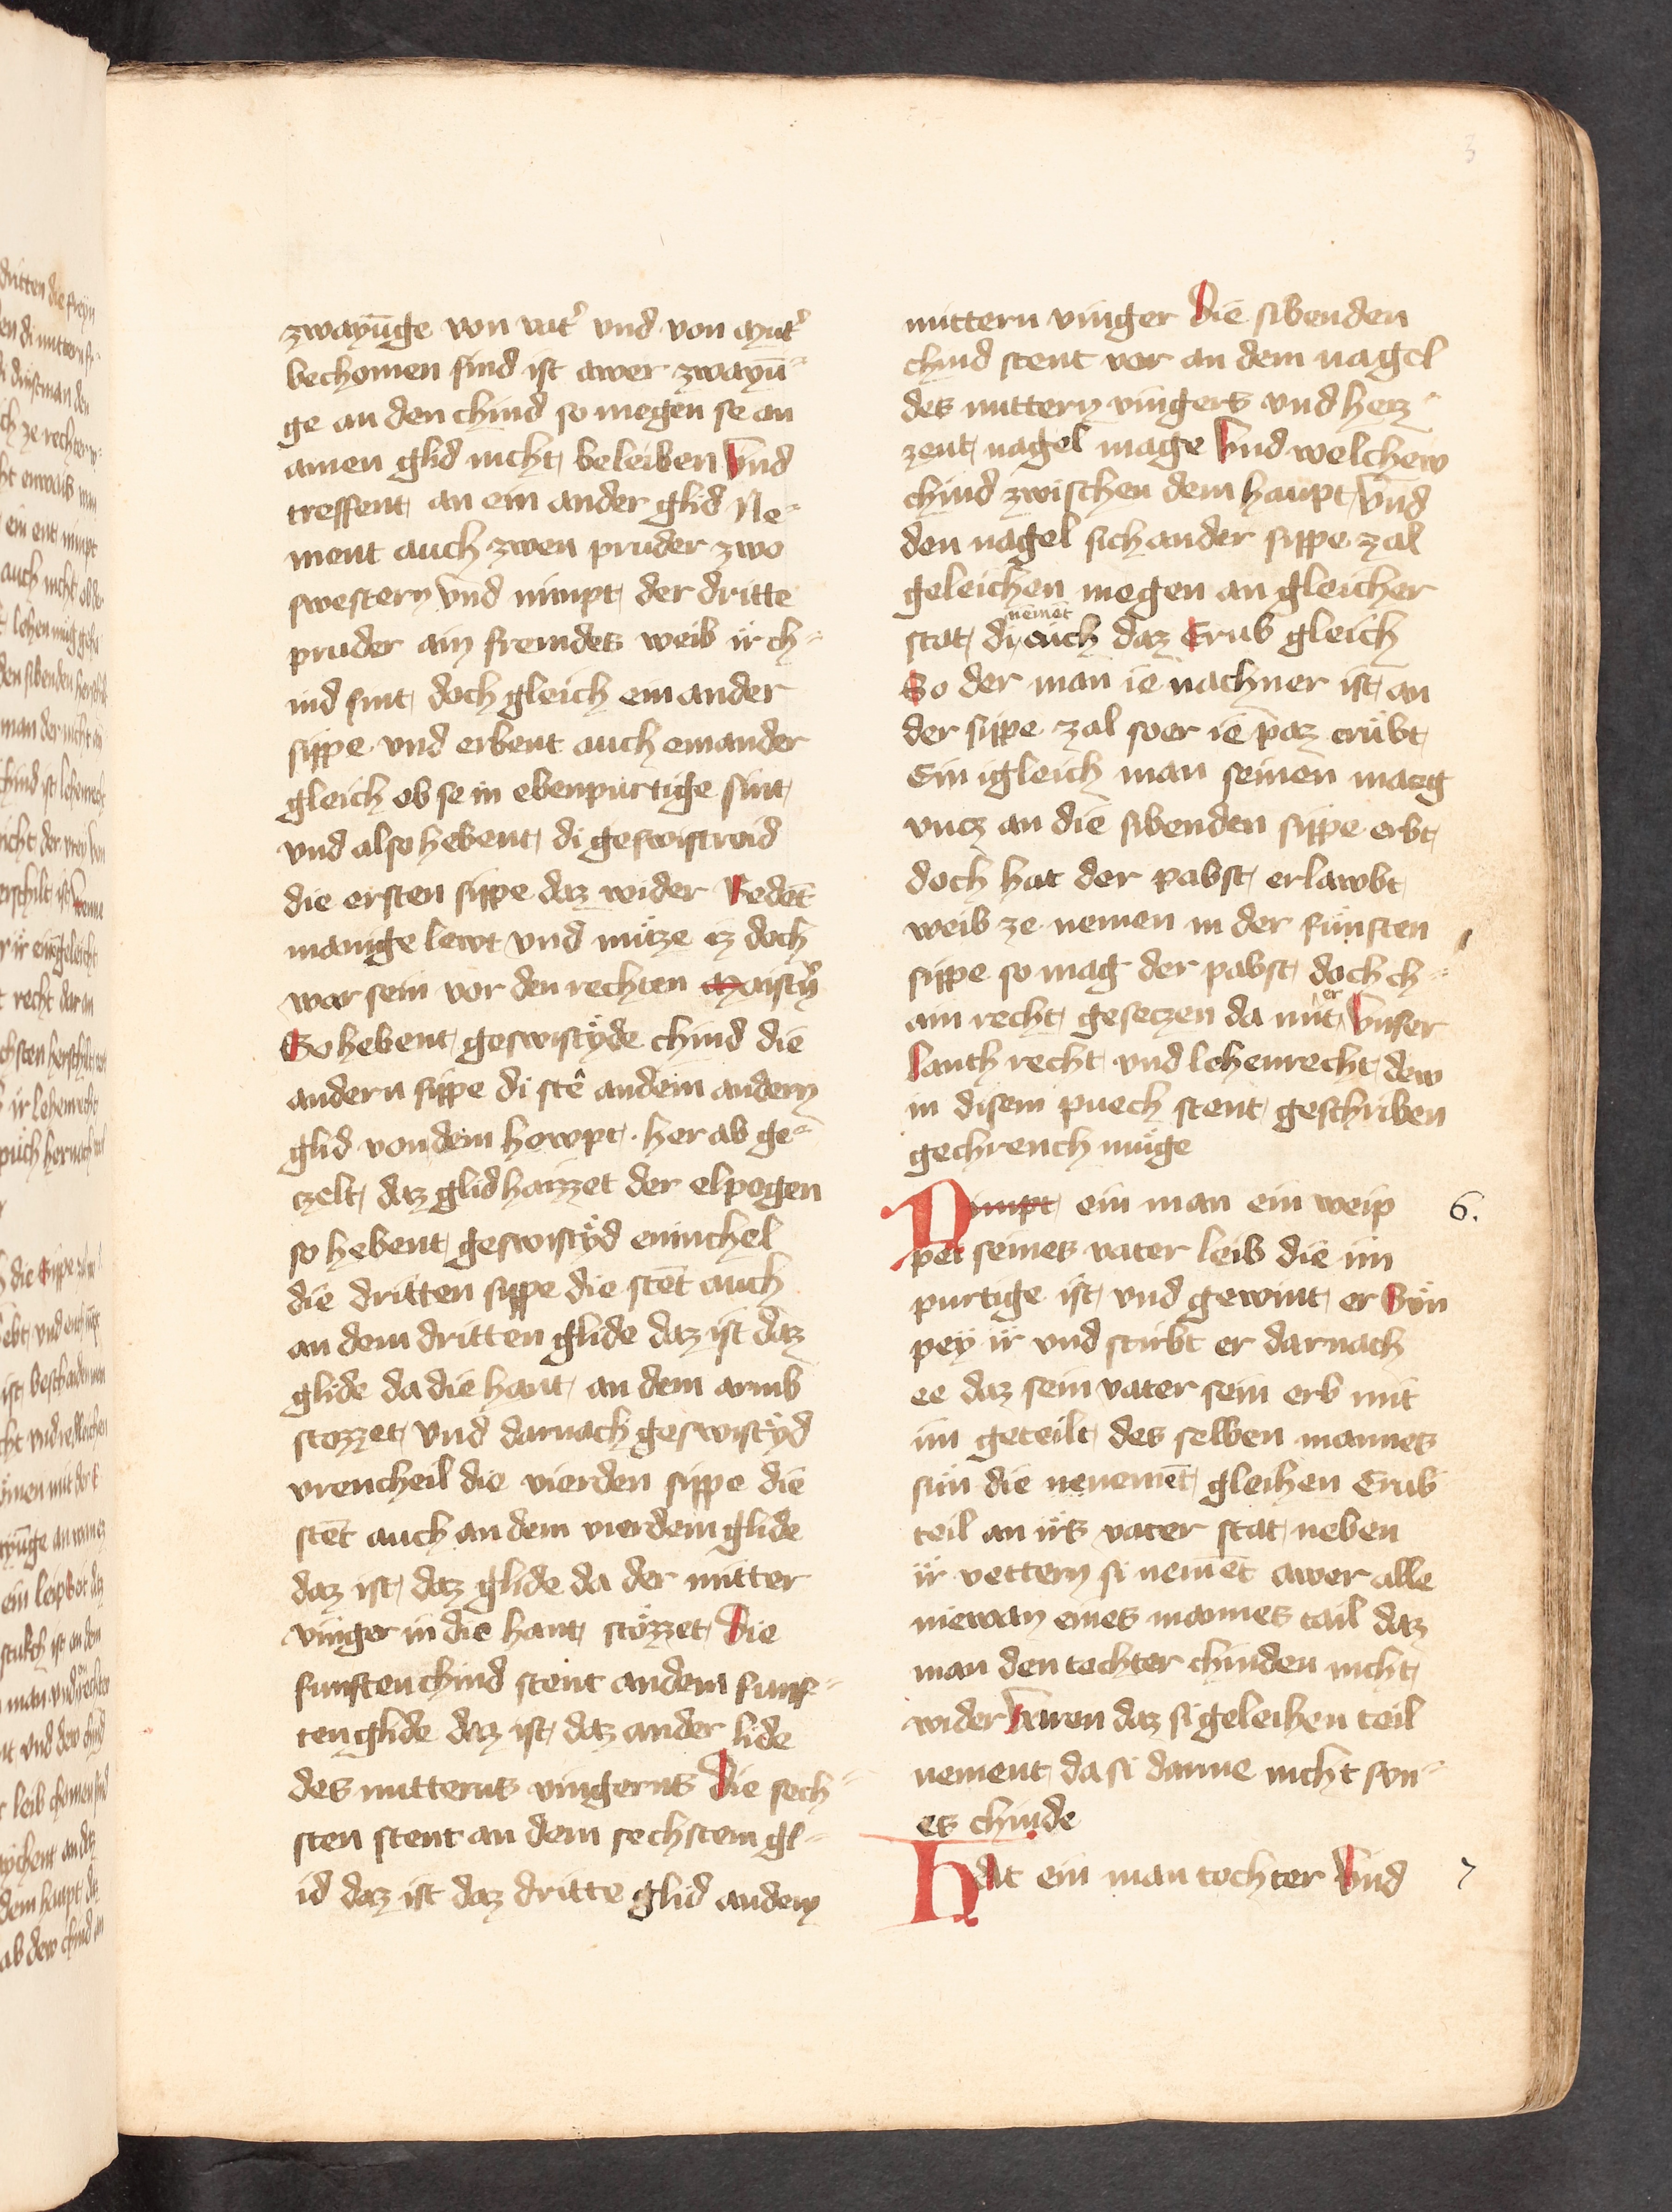 3
zwayūge von vat᷑ vnd von mut᷑
bechomen sind ist awer zwayū-
ge an den chind so megen se an
ainen glid nicht beleiben Vnd
treffent an ein ander glid Ne-
ment auch zwen pruder zwo
swestern vnd nimpt der dritte
pruder ain fremdes weib ir ch-
ind sint doch gleich ein ander
sippe vnd erbent auch einander
gleich ob se in ebenpurtige sint
vnd also hebent di geswistreid
die ersten sippe daz wider Redēt
manige lewt vnd müze iz doch
war sein vor den rechten
So hebent geswistyde chind die
andern sippe di stē an dem andern
glid von dem hawpt her ab ge-
czelt daz glid haizzet der elpogen
so hebent geswistyd eninchel
die dritten sippe die stēt auch
an dem dritten glide daz ist daz
glide da die hant an dem armb
stozzet vnd darnach geswistyd
vrencheil die vierden sippe die
stēt auch an dem vierdem glide
daz ist daz glide da der mitter
vinger in die hant stözzet Die
funften chind stent an dem funf-
ten glide daz ist daz ander lide
des mitterns vingerns Die sech-
sten stent an dem sechstem gl-
id daz ist daz dritte glid an dem
mittern vinger Die sibenden
chind stent vor an dem nagel
des mittern vingers vnd heiz-
zent nagel mage Vnd welchew
chind zwischen dem haupt vnd
den nagel sich an der sippe zal
geleichen megen an gleicher
nēmēt
stat di auch daz Erub gleich
So der man ie nachner ist an
der sippe zal so er ie paz erübt
Ein igleich man seinen maeg
vncz an die sibenden sippe erbt
doch hat der pabst erlawbt
weib ze nemen in der fünften
sippe so mag der pabst doch ch-
ain recht geseczen da mit er Vnser
lanth recht vnd lehenrecht dew
in disem puech stent geschriben
gechrench müge
Nimpt ein man ein weip
6.
pei seines vater leib die im
purtige ist vnd gewint er Sün
pey ir vnd stirbt er darnach
ee daz sein vater sein erb mit
im geteilt des selben mannes
sün die nenemēt gleihen Erub
teil an irs vater stat neben
ir vettern si nemēt awer alle
niewan eines mannes tail daz
man den tochter chinden nicht
wider daz si geleihen teil
nement da si danne nicht svn-
es chinde
Hat ein man tochter Vnd
7